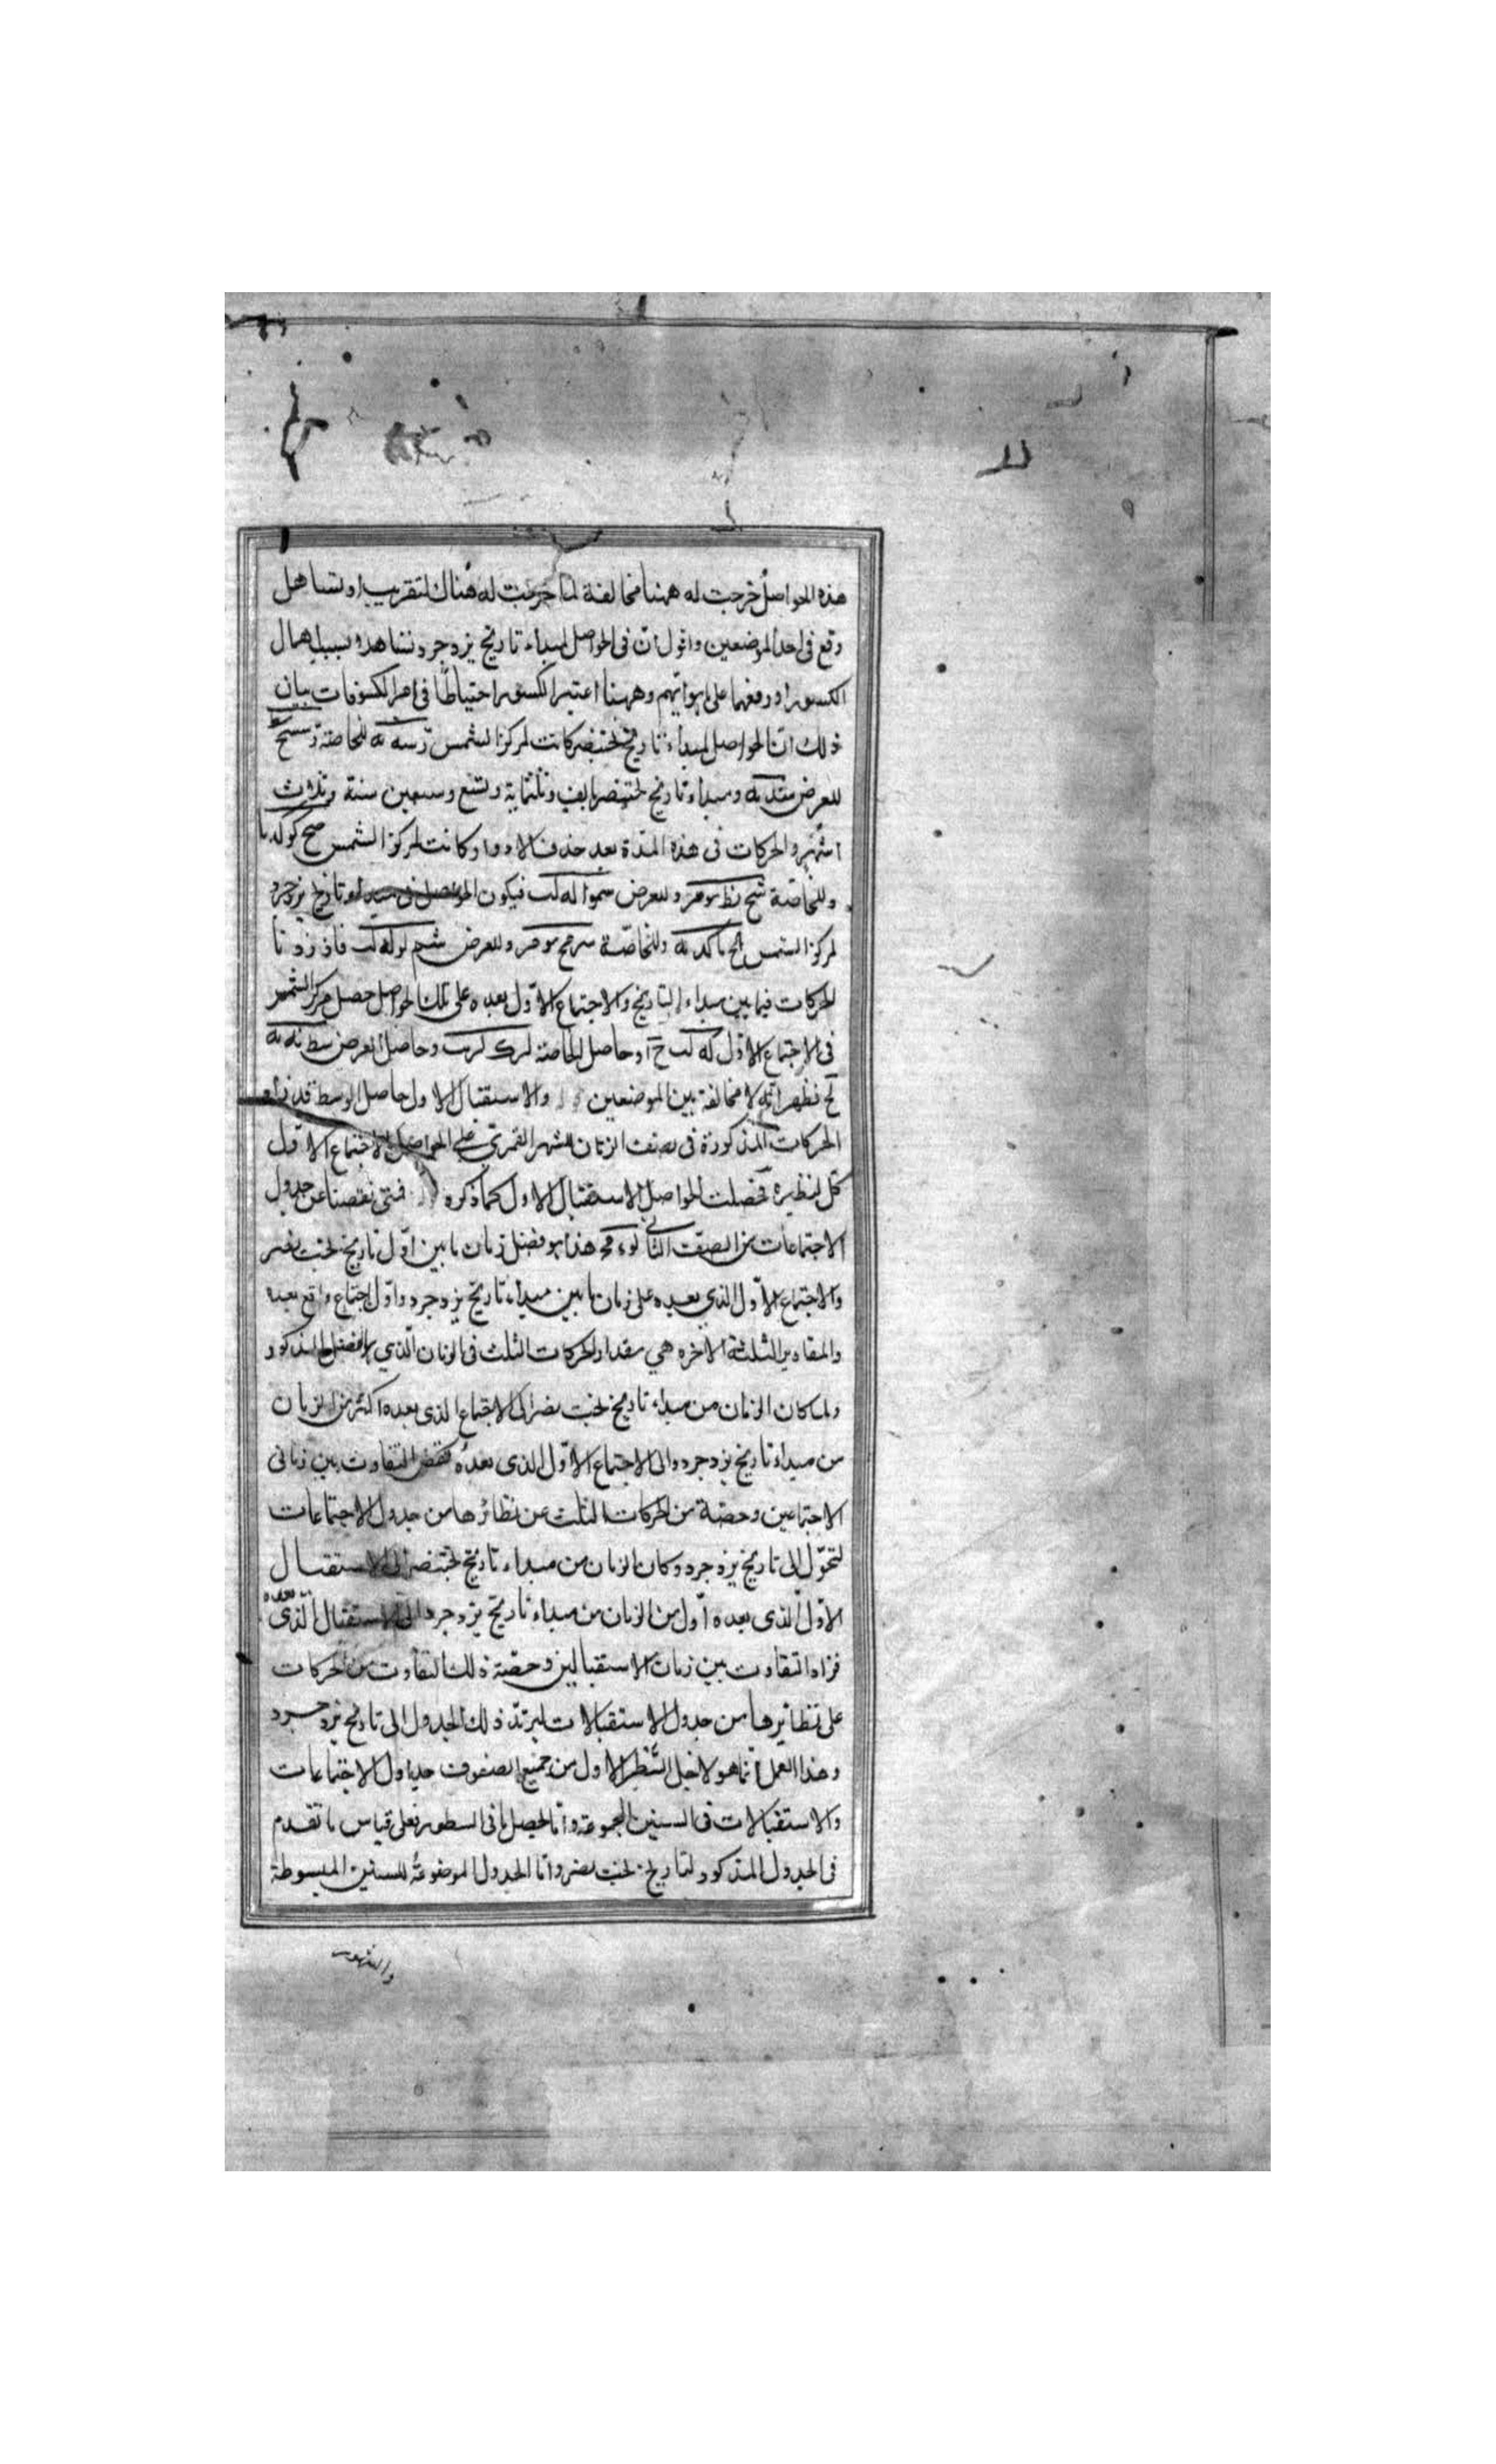 هذه الحواصل خرجت له ههنا مخالفة لما خرجت له هناك لتقريب او تساهل
وقع فى احد الموضعين واقول ان فى الحواصل لمبداء تاريخ يزدجرد تساهلا بسبب اهمال
الكسور او رفعها على ابوابهم وههنا اعتبر الكسور احتياطا فى امر الكسوفات بيان
ذلك ان الحواصل لمبداء تاريخ بختنصر كانت لمركز الشمس رسه نه للخاصة
للعرض ومبداء تاريخ بختنصر بالف وثلثماية وتسع وسبعين سنة وثلاث
اشهر والحركات فى هذه المدة بعد حذف الادوار كانت لمركز الشمس
وللخاصة وللعرض فيكون الحواصل فى مبداء تاريخ يزدجرد
لمركز الشمس وللخاصة وللعرض فاذ زدنا
الحركات فيما بين مبداء التاريخ والاجتماع الاول بعده على تلك الحواصل حصل مركز الشمس
فى الاجتماع الاول وحاصل الخاصة وحاصل العرض
فظهر انه لا مخالفة بين الموضعين والاستقبال الاول حاصل الوسط قد زاد
الحركات المذكورة فى نصف الزمان للشهر القمرى على الحواصل للاجتماع الاول
كل لنظيره فحصلت الحواصل للاستقبال الاول كما ذكره فمتى نقصنا عن جدول
الاجتماعات من الصف الثانى هذا هو فضل زمان ما بين اول تاريخ بخت نصر
والاجتماع الاول الذي بعده على زمان ما بين مبداء تاريخ يزدجرد واول اجتماع واقع بعده
والمقادير الثلثة الاخره هي مقدار الحركات الثلث فى الزمان الذي الفضل المذكور
ولما كان الزمان من مبداء تاريخ بخت نصر الى الاجتماع الذى بعده اكثر من الزمان
من مبداء تاريخ يزدجرد والى الاجتماع الاول الذى بعده نقص التفاوت بين زمانى
الاجتماعين وحصة من الحركات الثلث عن نظائرها من جدول الاجتماعات
لتحول الى تاريخ يزدجرد وكان الزمان من مبداء تاريخ بختنصر الى الاستقبال
الاول الذى بعده اول من الزمان من مبداء تاريخ يزدجرد الى الاستقبال الذى بعده
فزاد التفاوت بين زمان الاستقبالين وحصة ذلك التفاوت من الحركات
على نظائرها من جدول الاستقبالات ليرتد ذلك الجدول الى تاريخ يزدجرد
وهذا العمل انما هو لاجل السطر الاول من جميع الصفوف جداول الاجتماعات
والاستقبالات فى السنين المجموعة واما تحصيل باقى السطور فعلى قياس ما تقدم
فى الجدول المذكور لتاريخ بخت نصر واما الجدول الموضوعة للسنين المبسوطة
والشهور